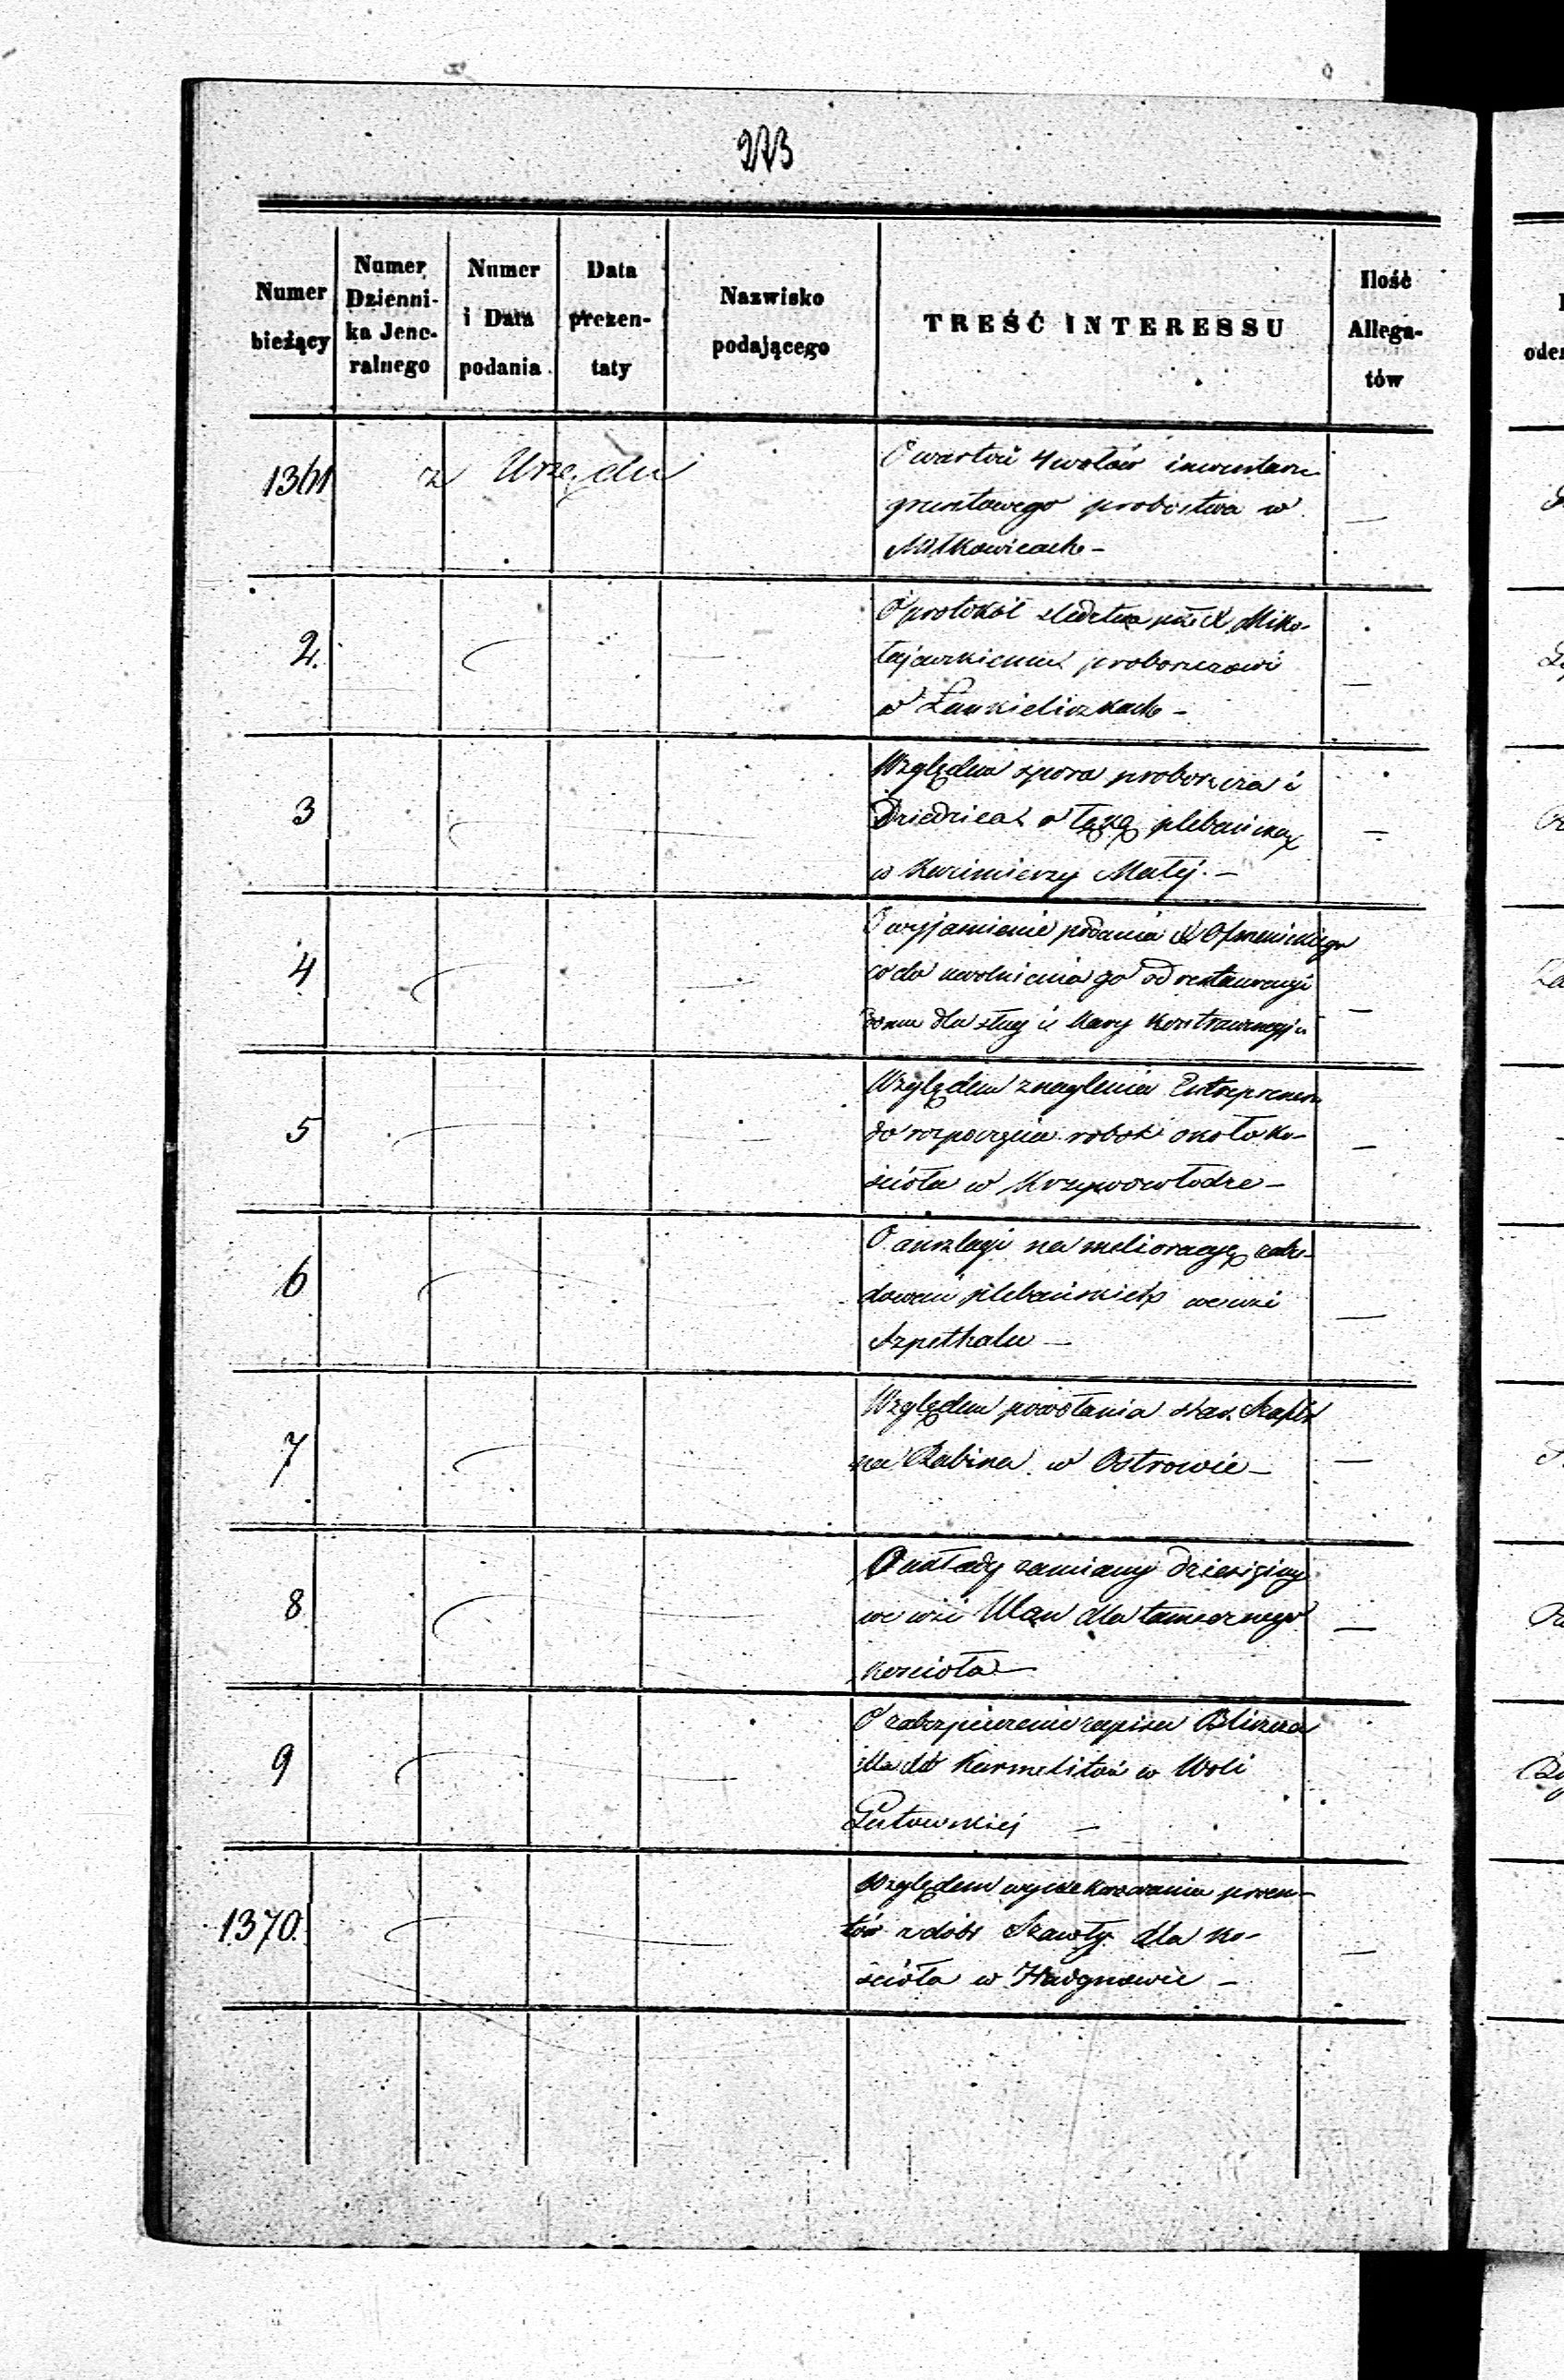 273
Numer bieżący
Numer Dzienni-ka Jene-ralnego
Numer i Data podania
Data prezen-taty
Nazwisko podającego
TREŚĆ INTERESSU
Ilość Allega-tów
1361 z Urzędu
O wartość 4 wołów inwentarza
gruntowego probostwa w
Miłkowicach -
2.
O protokół śledztwa X Miko-
łajewskiemu proboszczowi
w Łankieliszkach -
3
Względem spora proboszcza i
Dziedzica o łąkę plebańską
w Kazimierzy Małej -
4
O wyjaśnienie podania X
co do uwolnienia go od restauracyi
domu dla sług i
5
Względem znaglenia Entreprenera
do rozpoczęcia robót około ko-
ścioła w Krzywowłodze -
6
O anszlagi na melioracyę zabu-
dowań plebańskich we wsi
Szpethalu -
7
Względem powołania
na Rabina w Ostrowie -
8
O układy zamiany dziesięciny
we wsi Ulan dla tamecznego
kościoła -
9
O zabezpieczenie zapisu
dla Karmelitów w Woli
Gutowskiej -
1370.
Względem wyexekwowania procen-
tów z dóbr Szawły dla ko-
ścioła w -